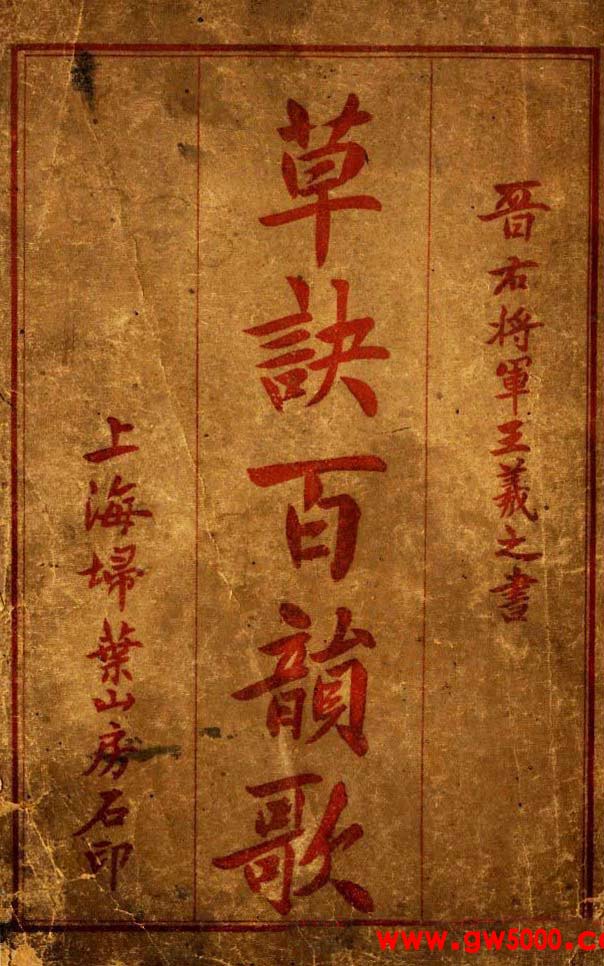 晋右将軍王羲之書
草訣百韻歌
上海埽葉山房石印
www.gw5000.c